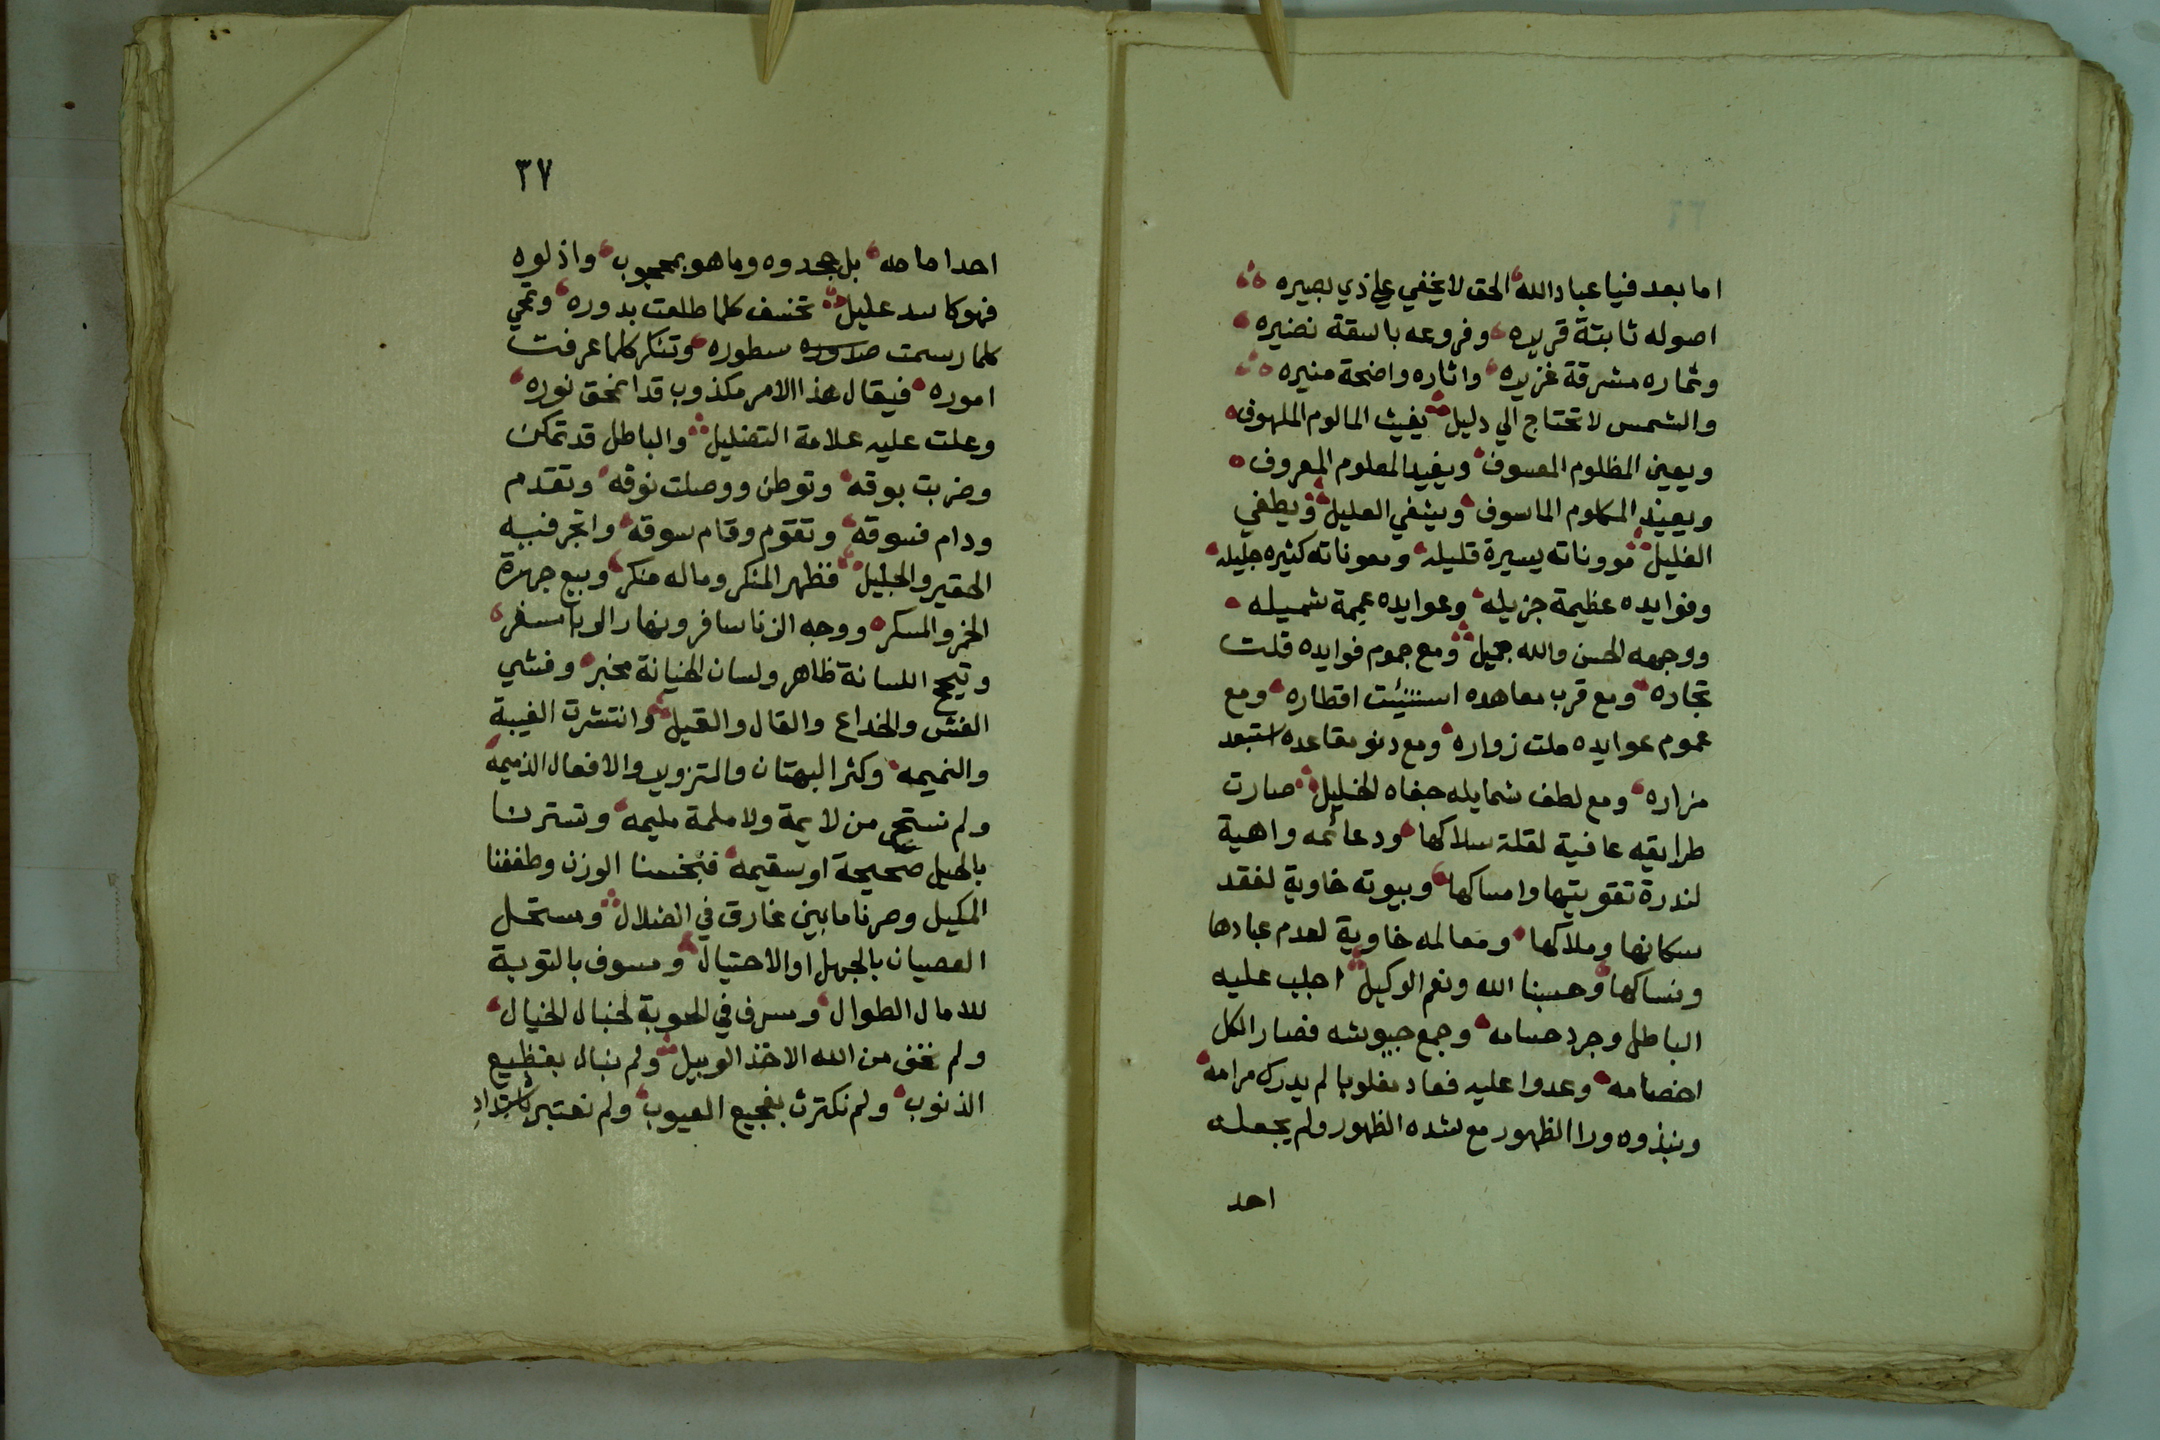 اما بعد فيا عباد الله الحق لا يخفي علي ذي بصيره
اصوله ثابتة قريره وفروعه باسقة نضيره
وثماره مشرقة غزيره واثاره واضحة منيره
والشمس لا تحتاج الي دليل يغيث المالوم الملهوف
ويعين المظلوم المعسوف ويفيد المعلوم المعروف
ويعيذ المكلوم الماسوف ويشفي العليل ويطفي
الغليل موناته يسيرة قليله ومعوناته كثيره جليله
وفوايده عظيمة جزيله وعوايده عميمة شميله
ووجهه الحسن والله جميل ومع جموم فوايده قلت
تجاره ومع قرب معاهده اقطاره ومع
عموم عوايده ملت زواره ومع دنو مقاعده استبعد
مزاره ومع لطف شمايله جفاه الخليل صارت
طرايقه عافية لقلة سلاكها ودعائمه واهية
لندرة تقويتها وامساكها وبيوته خاوية لفقد
سكانها وملاكها ومعالمه خاوية لعدم عبادها
ونساكها وحسبنا الله ونعم الوكيل اجلب عليه
الباطل وجرد حسامه وجمع جيوشه فصار الكل
اخصامه وعدوا عليه فعاد مغلوبا لم يدرك مرامه
ونبذوه ورا الظهور مع شده الظهور ولم يجعله
احد
٣٧
احدا مامه بل جحدوه وما هو بمحجوب واذلوه
فهو كاسد عليل تخسف كلما طلعت بدوره وتمحي
كلما رسمت صدوره سطوره وتنكر كلما عرفت
اموره فيقال هذا الامر مكذوب قد انمحق نوره
وعلت عليه علامة التضليل والباطل قد تمكن
وضربت بوقه وتوطن ووصلت نوقه وتقدم
ودام فسوقه وتقوم وقام سوقه واتجر فيه
الحقير والجليل فظهر المنكر وماله منكر وبيع جهرة
الخمر والمسكر ووجه الزنا سافر ونهار الربا مسفر
وقبح اللسانة ظاهر ولسان الخيانة مخبر وفشي
الغش والخداع والقال والقيل وانتشرت الغيبة
والنميمه وكثر البهتان والتزوير والافعال الذميمه
ولم نستحي من لايمة ولا ملمة مليمه وتسترنا
بالحيل صحيحة او سقيمه فبخسنا الوزن وطففنا
المكيل وصرنا مابين غارق في الضلال ومستحل
العصيان بالجهل او الاحتيال ومسوف بالتوبة
للامال الطوال ومسرف في الحوبة لخبال الخيال
ولم نخف من الله الاخذ الوبيل ولم نبال بفظيع
الذنوب ولم نكترث بفجيع العيوب ولم نعتبر باشتداد